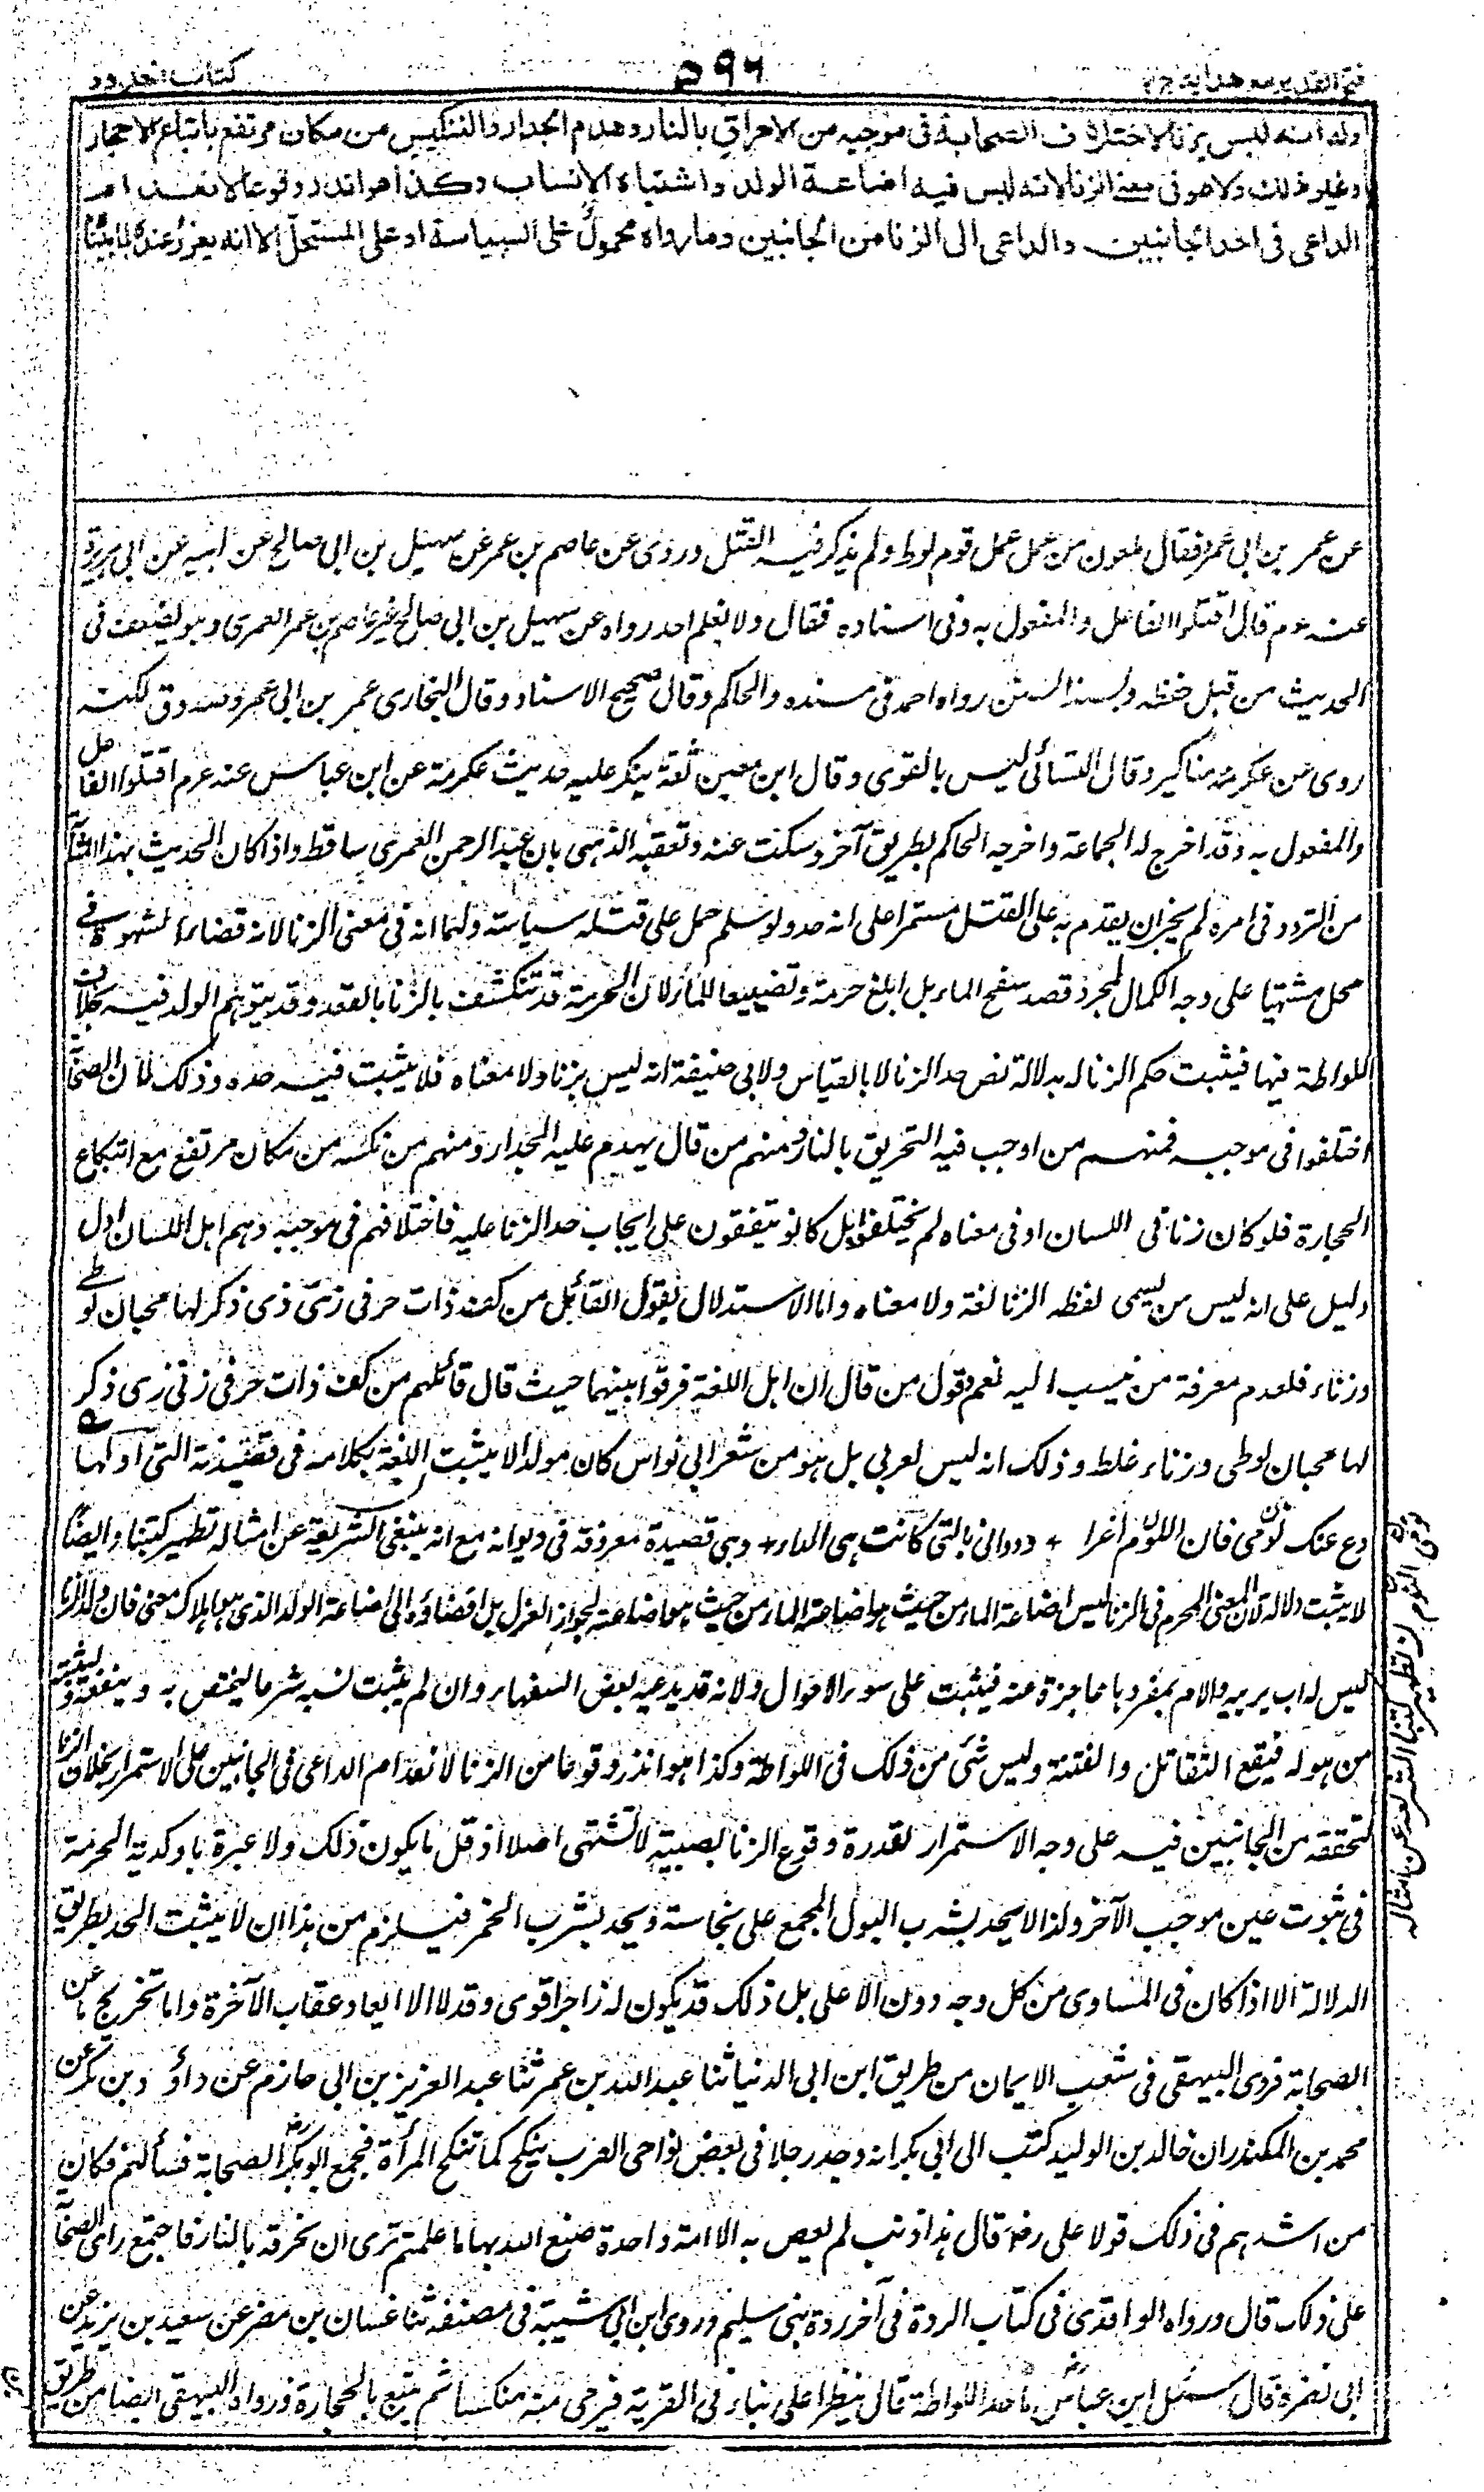 فتح القدير مع هداية ج ٢
٥٩٦
كتاب الحدود
وله انه ليس بزنا لاختلاف الصحابة في موجبه من الاحراق بالنار وهدم الجدار والتنكيس من مكان مرتفع باتباع الاحجار
وغير ذلك ولا هو في معنى الزنا لانه ليس فيه اضاعة الولد واشتباه الانساب وكذا هو اندر وقوعا لانعدام
الداعي في احد الجانبين والداعي الى الزنا من الجانبين وما رواه محمول على السياسة او على المستحل الا انه يعزر عنده لما بينا
عن عمر بن ابي عمرو فقال ملعون من عمل عمل قوم لوط ولم يذكر فيه القتل وروى عن عاصم بن عمر عن سهيل بن ابي صالح عن ابيه عن ابي هريرة
عنه عم قال اقتلوا الفاعل والمفعول به وفي اسناده فقال ولا نعلم احد رواه عن سهيل بن ابي صالح غير عاصم بن عمر العمري وهو يضعف في
الحديث من قبل حفظه وبسند السنن رواه احمد في مسنده والحاكم وقال صحيح الاسناد وقال البخاري عمر بن ابي عمرو صدوق لكنه
روى عن عكرمة مناكير وقال النسائي ليس بالقوي وقال ابن معين ثقة ينكر عليه حديث عكرمة عن ابن عباس عنه عم اقتلوا الفاعل
والمفعول به وقد اخرج له الجماعة واخرجه الحاكم بطريق آخر وسكت عنه وتعقبه الذهبي بان عبد الرحمن العمري ساقط واذا كان الحديث بهذا المثابة
من التردد في امره لم يجز ان يقدم به على القتل مستمرا على انه حد ولو سلم حمل على قتله سياسة ولهما انه في معنى الزنا لانه قضاء الشهوة في
محل مشتها على وجه الكمال لمجرد قصد سفح الماء بل ابلغ حرمة وتضييعا للماء لان الحرمة قد تنكشف بالزنا بالعقد وقد يتوهم الولد فيه بخلاف
اللواطة فيها فيثبت حكم الزنا له بدلالة نص حد الزنا لا بالقياس ولابي حنيفة انه ليس بزنا ولا معناه فلا يثبت فيه حده وذلك لان الصحابة
اختلفوا في موجبه فمنهم من اوجب فيه التحريق بالنار ومنهم من قال يهدم عليه الجدار ومنهم من نكسه من مكان مرتفع مع اتباع
الحجارة فلو كان زنا في اللسان او في معناه لم يختلفوا بل كانوا يتفقون على ايجاب حد الزنا عليه فاختلافهم في موجبه وهم اهل اللسان ادل
دليل على انه ليس من يسمى لفظ الزنا لغة ولا معناه واما الاستدلال بقول القائل من كف ذات حر في زي ذي ذكر لها محبان لوطي
وزناء فلعدم معرفة من نيسب اليه نعم وقول من قال ان اهل اللغة فرقوا بينهما حيث قال قائلهم من كف ذات حر في زي ذي ذكر
لها محبان لوطي وزناء غلط وذلك انه ليس لعربي بل هو من شعر ابي نواس كان مولدا لا يثبت اللغة بكلامه في قصيدته التي اولها
دع عنك لومي فان اللوم اغراء + وداوني بالتي كانت هي الداء + وهي قصيدة معروفة في ديوانه مع انه ينبغي الشريعة عن امثاله تطهير كتبنا وايضا
لا يثبت دلالة لان المعنى المحرم في الزنا ليس اضاعة الماء من حيث هو اضاعة الماء من حيث هو اضاعة لجواز العزل بل افضاؤه الى اضاعة الولد الذي هو اهلاك معنى فان ولد الزنا
ليس له اب يربيه والام بمفردها عاجزة عنه فيثبت على سوء الاحوال ولانه قد يدعيه بعض السفهاء وان لم يثبت نسبه شرعا ليختص به وينفعه ويشتبه
من هو له فيقع التقاتل والفتنة وليس شئ من ذلك في اللواطة وكذا هو اندر وقوعا من الزنا لانعدام الداعي في الجانبين على الاستمرار بخلاف الزنا
لتحققه من الجانبين فيه على وجه الاستمرار لقدرة وقوع الزنا بصبية لا تشتهى اصلا اذ قل ما يكون ذلك ولا عبرة باوكدية الحرمة
في ثبوت عين موجب الآخر ولذا لا يحد بشرب البول المجمع على نجاسته ويحد بشرب الخمر فيلزم من هذا ان لا يثبت الحد بطريق
الدلالة الا اذا كان في المساوي من كل وجه دون الاعلى بل ذلك قد يكون له زاجرا قوى وقد لا الا ايعاد عقاب الآخرة واما تخريج ما عن
الصحابة فروى البيهقي في شعب الايمان من طريق ابن ابي الدنيا ثنا عبد الله بن عمر ثنا عبد العزيز بن ابي حازم عن داؤد بن بكر عن
محمد بن المكندر ان خالد بن الوليد كتب الى ابي بكر انه وجد رجلا في بعض نواحي العرب ينكح كما تنكح المرأة فجمع ابو بكر رض الصحابة فسألهم فكان
من اشدهم في ذلك قولا على رض قال هذا ذنب لم يعص به الا امة واحدة صنع الله بها ما علمتم نرى ان نحرقه بالنار فاجتمع راى الصحابة
على ذلك قال ورواه الواقدي في كتاب الردة في آخر ردة بني سليم وروى ابن ابي شيبة في مصنفه ثنا غسان بن مضر عن سعيد بن يزيد عن
ابي نضرة قال سئل ابن عباس رض ما حد اللواطة قال ينظر اعلى بناء في القرية فيرمى منه منكسا ثم يتبع بالحجارة ورواه البيهقي ايضا من طريق
تطهير كتبنا الشريعة عن امثاله